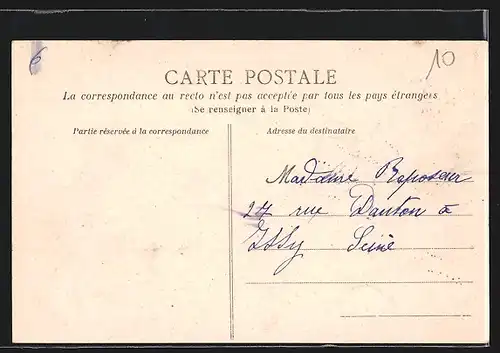 6
10
CARTE POSTALE
La correspondance au recto n'est pas acceptée par tous les pays étrangers
(Se renseigner à la Poste)
Partie réservée à la correspondance
Adresse du destinataire
Madame Reposeur
27 rue Danton à
Issy Seine